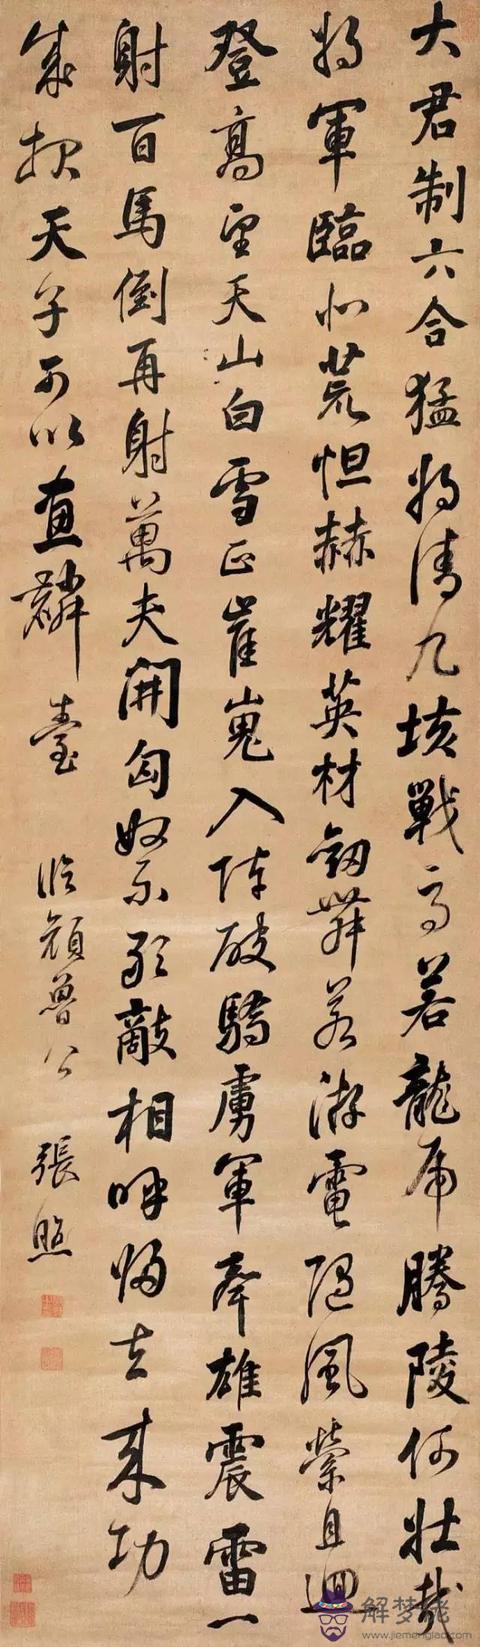 大君制六合猛將清九垓戰馬若龍虎騰陵何壯哉
將軍臨北荒怛赫耀英材劒舞若游電隨風縈且迴
登高望天山白雪正崔嵬入陣破驕虜軍聲雄震雷一
射百馬倒再射萬夫開匈奴不敢敵相呼歸去來功
成報天子可以畫麟臺 臨顏魯公 張照
解梦佬
www.jiemenglao.com